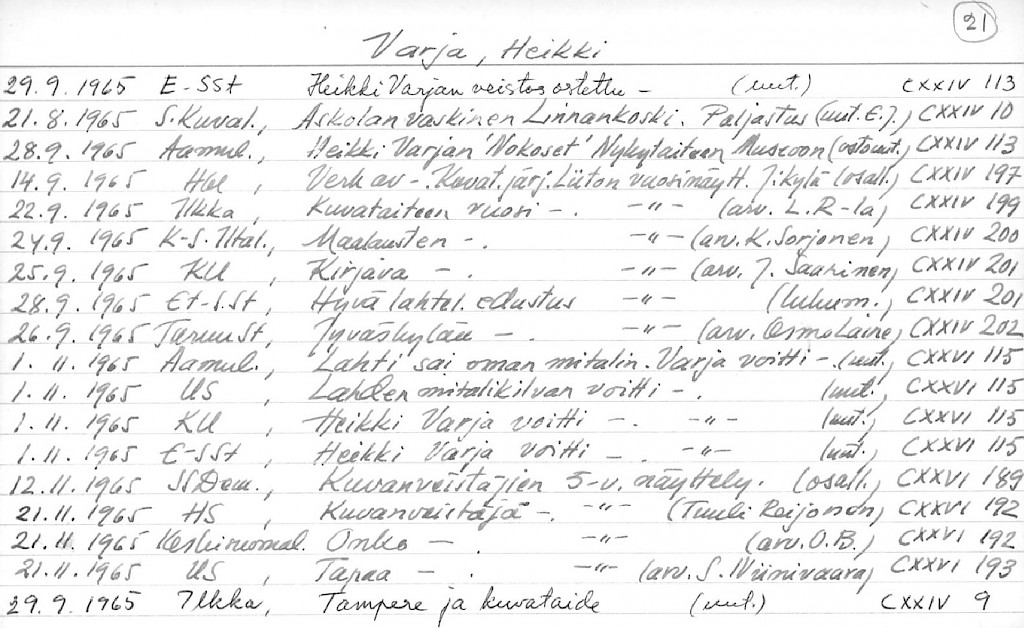 21
Varja, Heikki
29.9.1965 E-SSt Heikki Varjan veistos ostettu - (uut.) CXXIV 113
21.8.1965 S.Kuval., Askolan vaskinen Linnankoski. Paljastus (uut. E.J.) CXXIV 10
28.9.1965 Aamul., Heikki Varjan 'Nokoset' Nykytaiteen Museoon (ostouut.) CXXIV 113
14.9.1965 Hbl, Verk av -. Kuvat.järj.Liiton vuosinäytt. J:kylä (osall.) CXXIV 197
22.9.1965 Ilkka, Kuvataiteen vuosi -. -"- (arv. L.R-la) CXXIV 199
24.9.1965 K-S.Iltal., Maalausten -. -"- (arv. K. Sorjonen) CXXIV 200
25.9.1965 KU, Kirjava -. -"- (arv. J. Saarinen) CXXIV 201
28.9.1965 Et-S.St, Hyvä lahtel. edustus -"- (lukum.) CXXIV 201
26.9.1965 TurunSt, Jyväskylän - -"- (arv. Osmo Laine) CXXIV 202
1.11.1965 Aamul., Lahti sai oman mitalin. Varja voitti -. (uut.) CXXVI 115
1.11.1965 US, Lahden mitalikilvan voitti -. (uut.) CXXVI 115
1.11.1965 KU, Heikki Varja voitti -. -"- (uut.) CXXVI 115
1.11.1965 E-SSt, Heikki Varja voitti -. -"- (uut.) CXXVI 115
12.11.1965 SSDem., Kuvanveistäjien 5-v. näyttely. (osall.) CXXVI 189
21.11.1965 HS, Kuvanveistäjä -. -"- (Tuuli Reijonen) CXXVI 192
21.11.1965 Keskisuomal. Onko -. -"- (arv. O.B.) CXXVI 192
21.11.1965 US, Tapaa -. -"- (arv. S. Niinivaara) CXXVI 193
29.9.1965 Ilkka, Tampere ja kuvataide (uut.) CXXIV 9